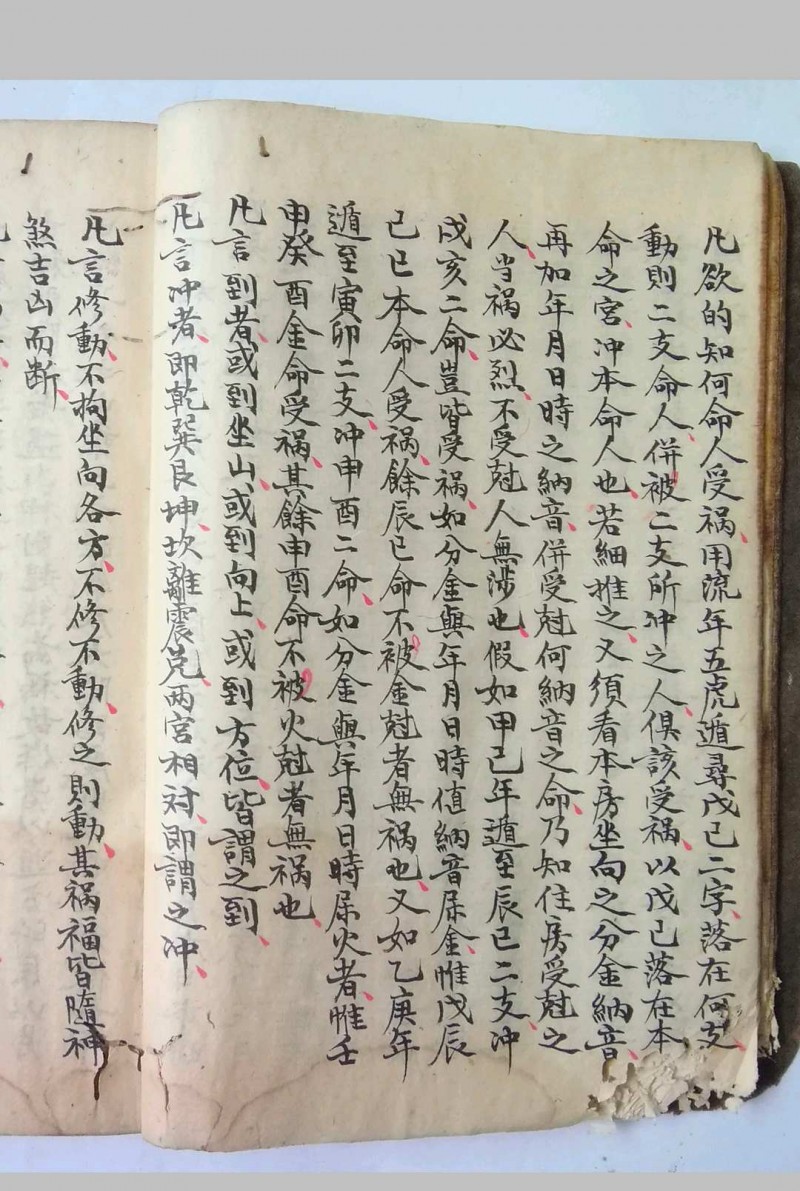 凡欲的知何命人受禍、用流年五虎遁尋戊己二字、落在何支、
動則二支命人、併被二支所冲之人、俱該受禍、以戊己落在本
命之宮、冲本命人也、若細推之、又須看本房坐向之分金納音、
再加年月日時之納音、併受尅何納音之命、乃知住房受尅之
人、当禍必烈、不受尅人無涉也、假如甲己年遁至辰巳二支、冲
戌亥二命、豈皆受禍、如分金與年月日時值納音属金、惟戊辰
己巳本命人受禍、餘辰巳命不被金尅者無禍也、又如乙庚年
遁至寅卯二支、冲申酉二命、如分金與年月日時属火者、惟壬
申癸酉金命受禍、其餘申酉命不被火尅者無禍也、
凡言到者、或到坐山、或到向上、或到方位、皆謂之到、
凡言冲者、即乾巽艮坤、坎離震兌、兩宮相对、即謂之冲、
凡言修動、不拘坐向各方、不修不動、修之則動、其禍福皆隨神
煞吉凶而断、